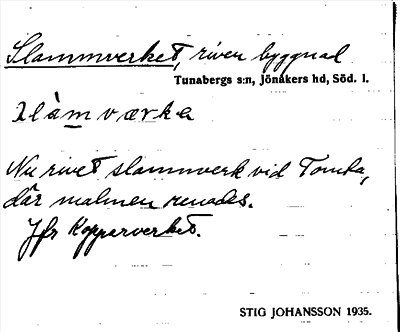 Slammverket, riven byggnad
Tunabergs s:n, Jönåkers hd, Söd. l.
slàmværka
Nu rivet slammverk vid Tomta,
där malmen renades.
Jfr Kopparverket.
STIG JOHANSSON 1935.